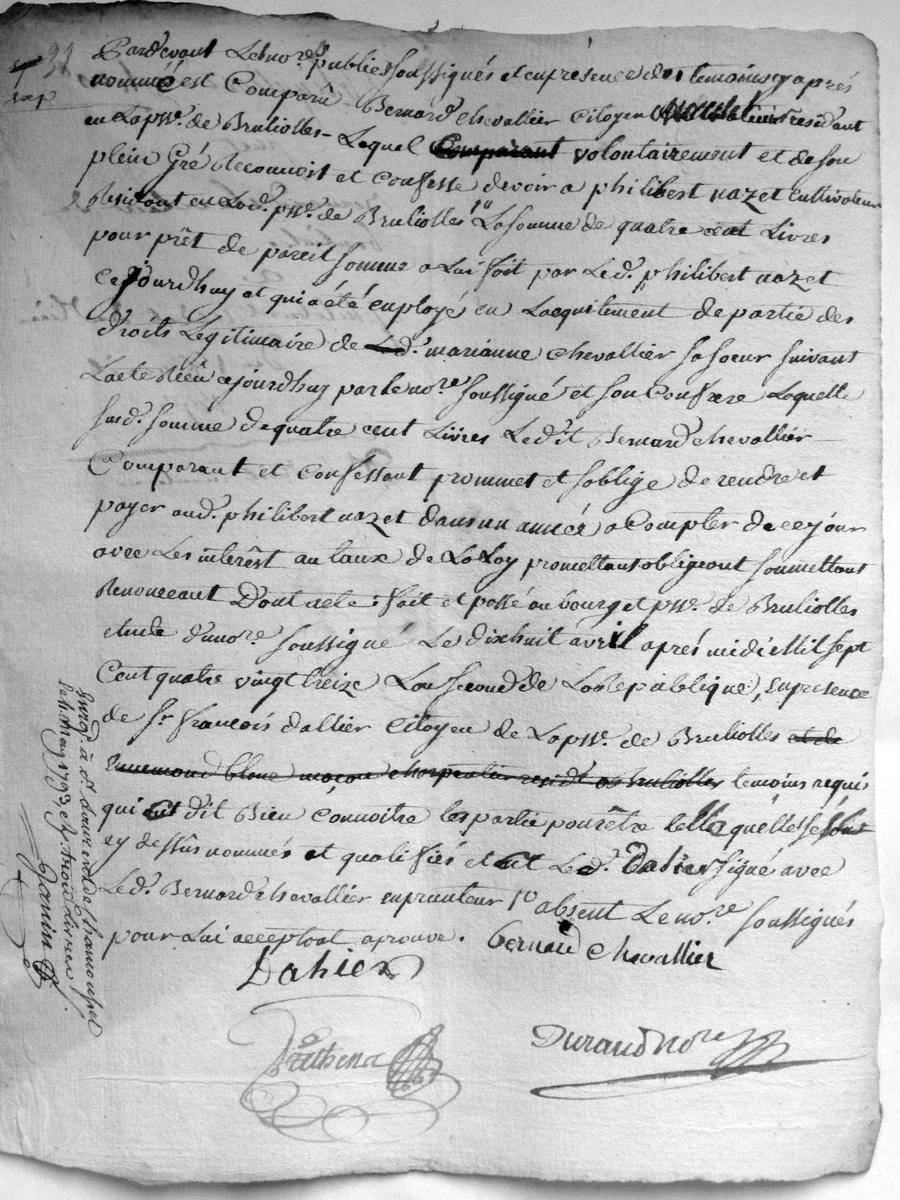 31
exp
Pardevant Les no.res publics Soussignés et en présence des temoins cy après
nommés est Comparû Bernard Chevallier Citoyen résidant
en La pss.e de Brulliolles Lequel Comparant volontairement et de son
plein Gré Reconnoit et Confesse devoir a philibert nazet Cultivateur
Résidant en Lad. pss.e de Brulliolles La Somme de quatre cent Livres
pour prêt de pareil Somme a Lui fait par Led. philibert nazet
Cejourdhuy et qui a été employé en Lacquitement de partie des
droits Legitimaire de Lad. marianne Chevallier Sa Soeur Suivant
Lacte Reçû cejourdhuy par le no.re Soussigné et Son Confrere Laquelle
Susd. Somme de quatre cent Livres Ledit Bernard Chevallier
Comparant et Confessant prommet et Soblige de rendre et
payer aud. philibert nazet dans un année a Compter de ce jour
avec Les intérêt au taux de La Loy promettant obligeant Soumettant
Renonceant Dont acte : fait et passé au bourg et pss.e de Brulliolles
etude d'un no.re Soussigné Le dixhuit avril après midi Mil Sept
Cent quatre vingt treize Lan Second de La Republique, en presence
de Sr. francois dallier Citoyen de La pss.e de Brulliolles et de
maçon charpentier resid.t a Brulliolles temoins requis
qui ont dit Bien Connoitre les partie pour être telle quelles Se Sont
cy dessûs nommés et qualifiés et ont Led. Dahier Signé avec
Led. Bernard Chevallier enprunteur absent Le no.re Soussignés
pour Lui acceptant aprouve.
bernard chevallier
Dahier
Durand no.re
Enreg. à St Laurent de Chamousset
Le 1. May 1793,